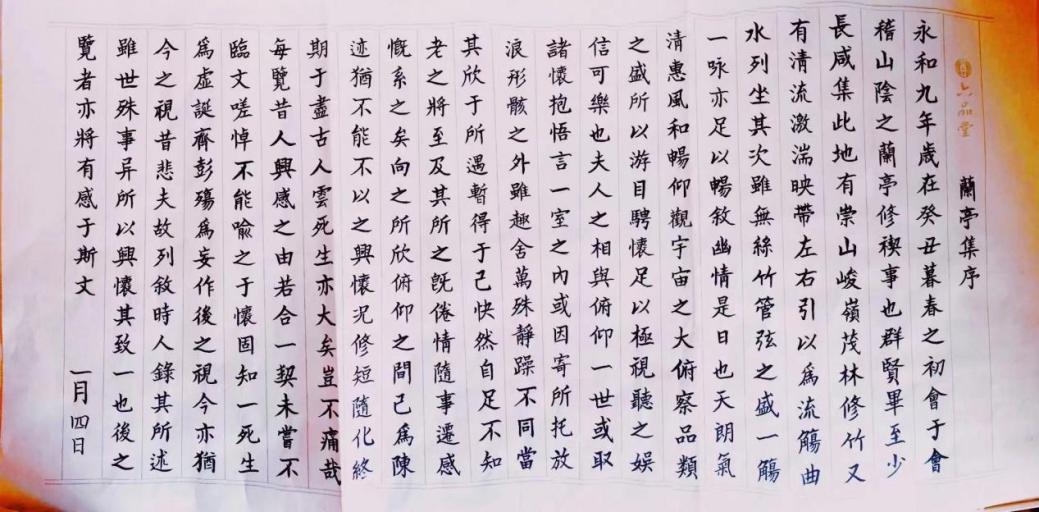 六品堂
蘭亭集序
永和九年歲在癸丑暮春之初會于會
稽山陰之蘭亭修禊事也群賢畢至少
長咸集此地有崇山峻嶺茂林修竹又
有清流激湍映帶左右引以爲流觴曲
水列坐其次雖無絲竹管弦之盛一觴
一咏亦足以暢敘幽情是日也天朗氣
清惠風和暢仰觀宇宙之大俯察品類
之盛所以游目騁懷足以極視聽之娱
信可樂也夫人之相與俯仰一世或取
諸懷抱悟言一室之内或因寄所托放
浪形骸之外雖趣舍萬殊靜躁不同當
其欣于所遇暫得于己快然自足不知
老之將至及其所之既倦情隨事遷感
慨系之矣向之所欣俯仰之間已爲陳
迹猶不能不以之興懷况修短隨化終
期于盡古人雲死生亦大矣豈不痛哉
每覽昔人興感之由若合一契未嘗不
臨文嗟悼不能喻之于懷固知一死生
爲虛誕齊彭殤爲妄作後之視今亦猶
今之視昔悲夫故列敘時人錄其所述
雖世殊事异所以興懷其致一也後之
覽者亦將有感于斯文 一月四日